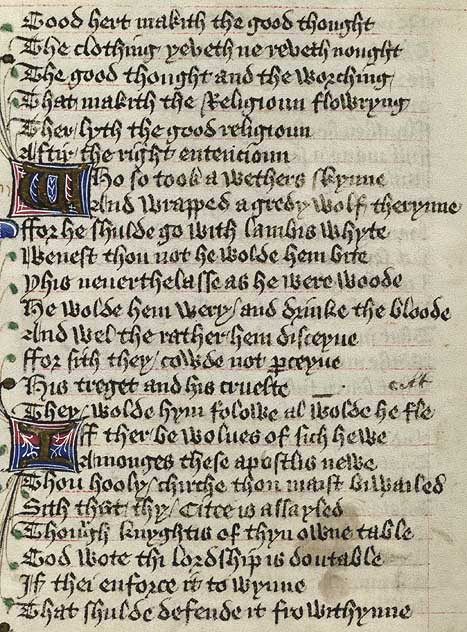 Good hert makith the good thought
The clothing yeveth ne reveth nought
The good thought and the worching
That makith the Religioun flowryng
Ther lyth the good religioun
Aftir the right entencioun
Who so took a wethers skynne
And wrapped a gredy wolf therynne
ffor he shulde go with lambis whyte
Wenest thou not he wolde hem bite
Yhis neuerthelasse as he were woode
He wolde hem wery / and drinke the bloode
And wel the rather hem disceyue
ffor sith they / cowde not pceyue
His treget and his cruelte
They / wolde hym folowe al wolde he fle
If ther be wolues of sich hewe
Amonges these apostlis newe
Thou hooly / chirche thou maist biwailed
Sith that / thy / Citee is assayled
Though knyghtis of thyn owne table
God wote thi lordship is doutable
If thei enforce it to wynne
That shulde defende it fro withynne